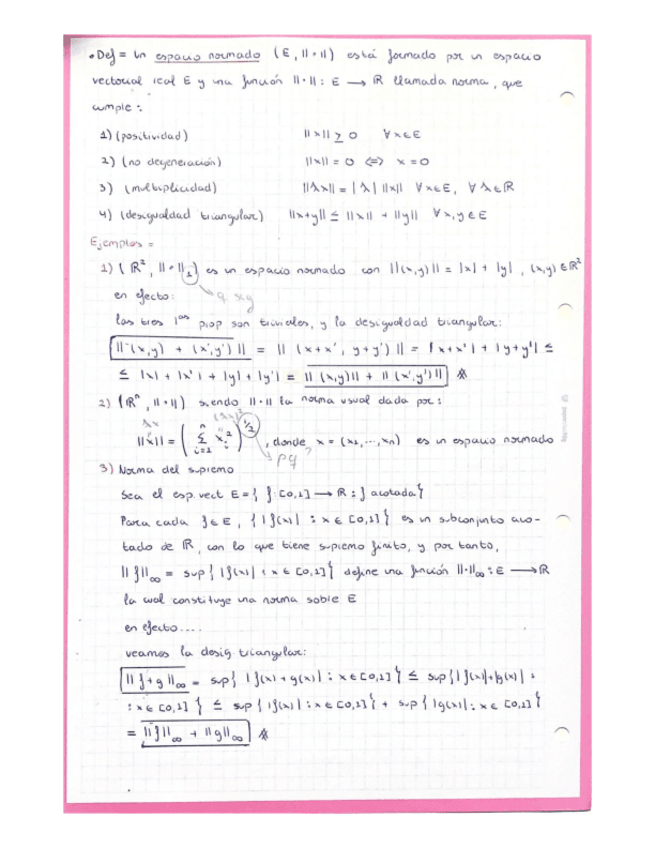 • Def = Un espacio normado (E, ||·||) está formado por un espacio
vectorial real E y una función ||·|| : E → ℝ llamada norma, que
cumple :
1) (positividad) ||x|| ≥ 0 ∀x∈E
2) (no degeneración) ||x|| = 0 ⟺ x = 0
3) (multiplicidad) ||λx|| = |λ| ||x|| ∀x∈E, ∀λ∈ℝ
4) (desigualdad triangular) ||x+y|| ≤ ||x|| + ||y|| ∀x,y∈E
Ejemplos =
1) (ℝ², ||·||₁) es un espacio normado con ||(x,y)|| = |x| + |y|, (x,y)∈ℝ²
en efecto:
las tres 1ᵃˢ prop son triviales, y la desigualdad triangular:
||(x,y) + (x',y')|| = ||(x+x', y+y')|| = |x+x'| + |y+y'| ≤
≤ |x| + |x'| + |y| + |y'| = ||(x,y)|| + ||(x',y')|| *
2) (ℝⁿ, ||·||) siendo ||·|| la norma usual dada por :
λx (λx)²
||x|| = ( Σ_{i=1}^{n} x_i² )^{1/2}, donde x = (x₁,...,xₙ) es un espacio normado
pq ?
3) Norma del supremo
Sea el esp. vect E = { f : [0,1] → ℝ : f acotada }
Para cada f∈E, { |f(x)| : x∈[0,1] } es un subconjunto aco-
tado de ℝ, con lo que tiene supremo finito, y por tanto,
||f||∞ = sup{ |f(x)| : x∈[0,1] } define una función ||·||∞ : E → ℝ
la cual constituye una norma sobre E
en efecto....
veamos la desig. triangular:
||f+g||∞ = sup{ |f(x)+g(x)| : x∈[0,1] } ≤ sup{ |f(x)|+|g(x)| :
: x∈[0,1] } ≤ sup{ |f(x)| : x∈[0,1] } + sup{ |g(x)| : x∈[0,1] }
= ||f||∞ + ||g||∞ *